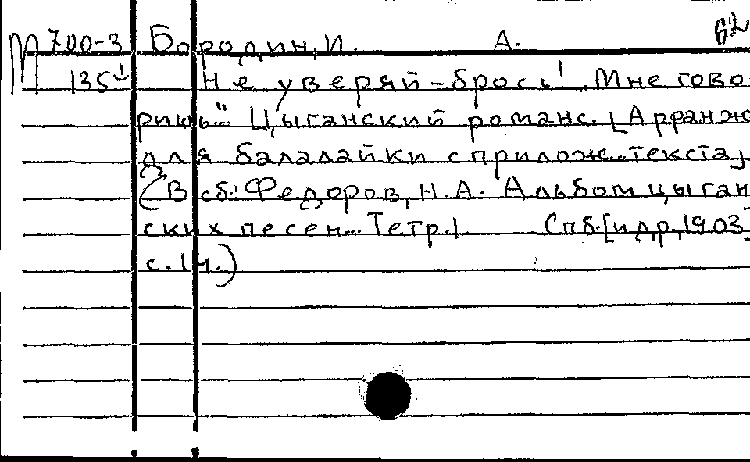 М 700-3 Бородин, И. А. 62
135¹ Не уверяй - брось! "Мне гово
ришь" Цыганский романс. [Арранж
для балалайки с прилож. текста]
(В сб.: Федоров, Н.А. Альбом цыган
ских песен... Тетр. 1. Спб. [и др. 1903]
с. 14.)